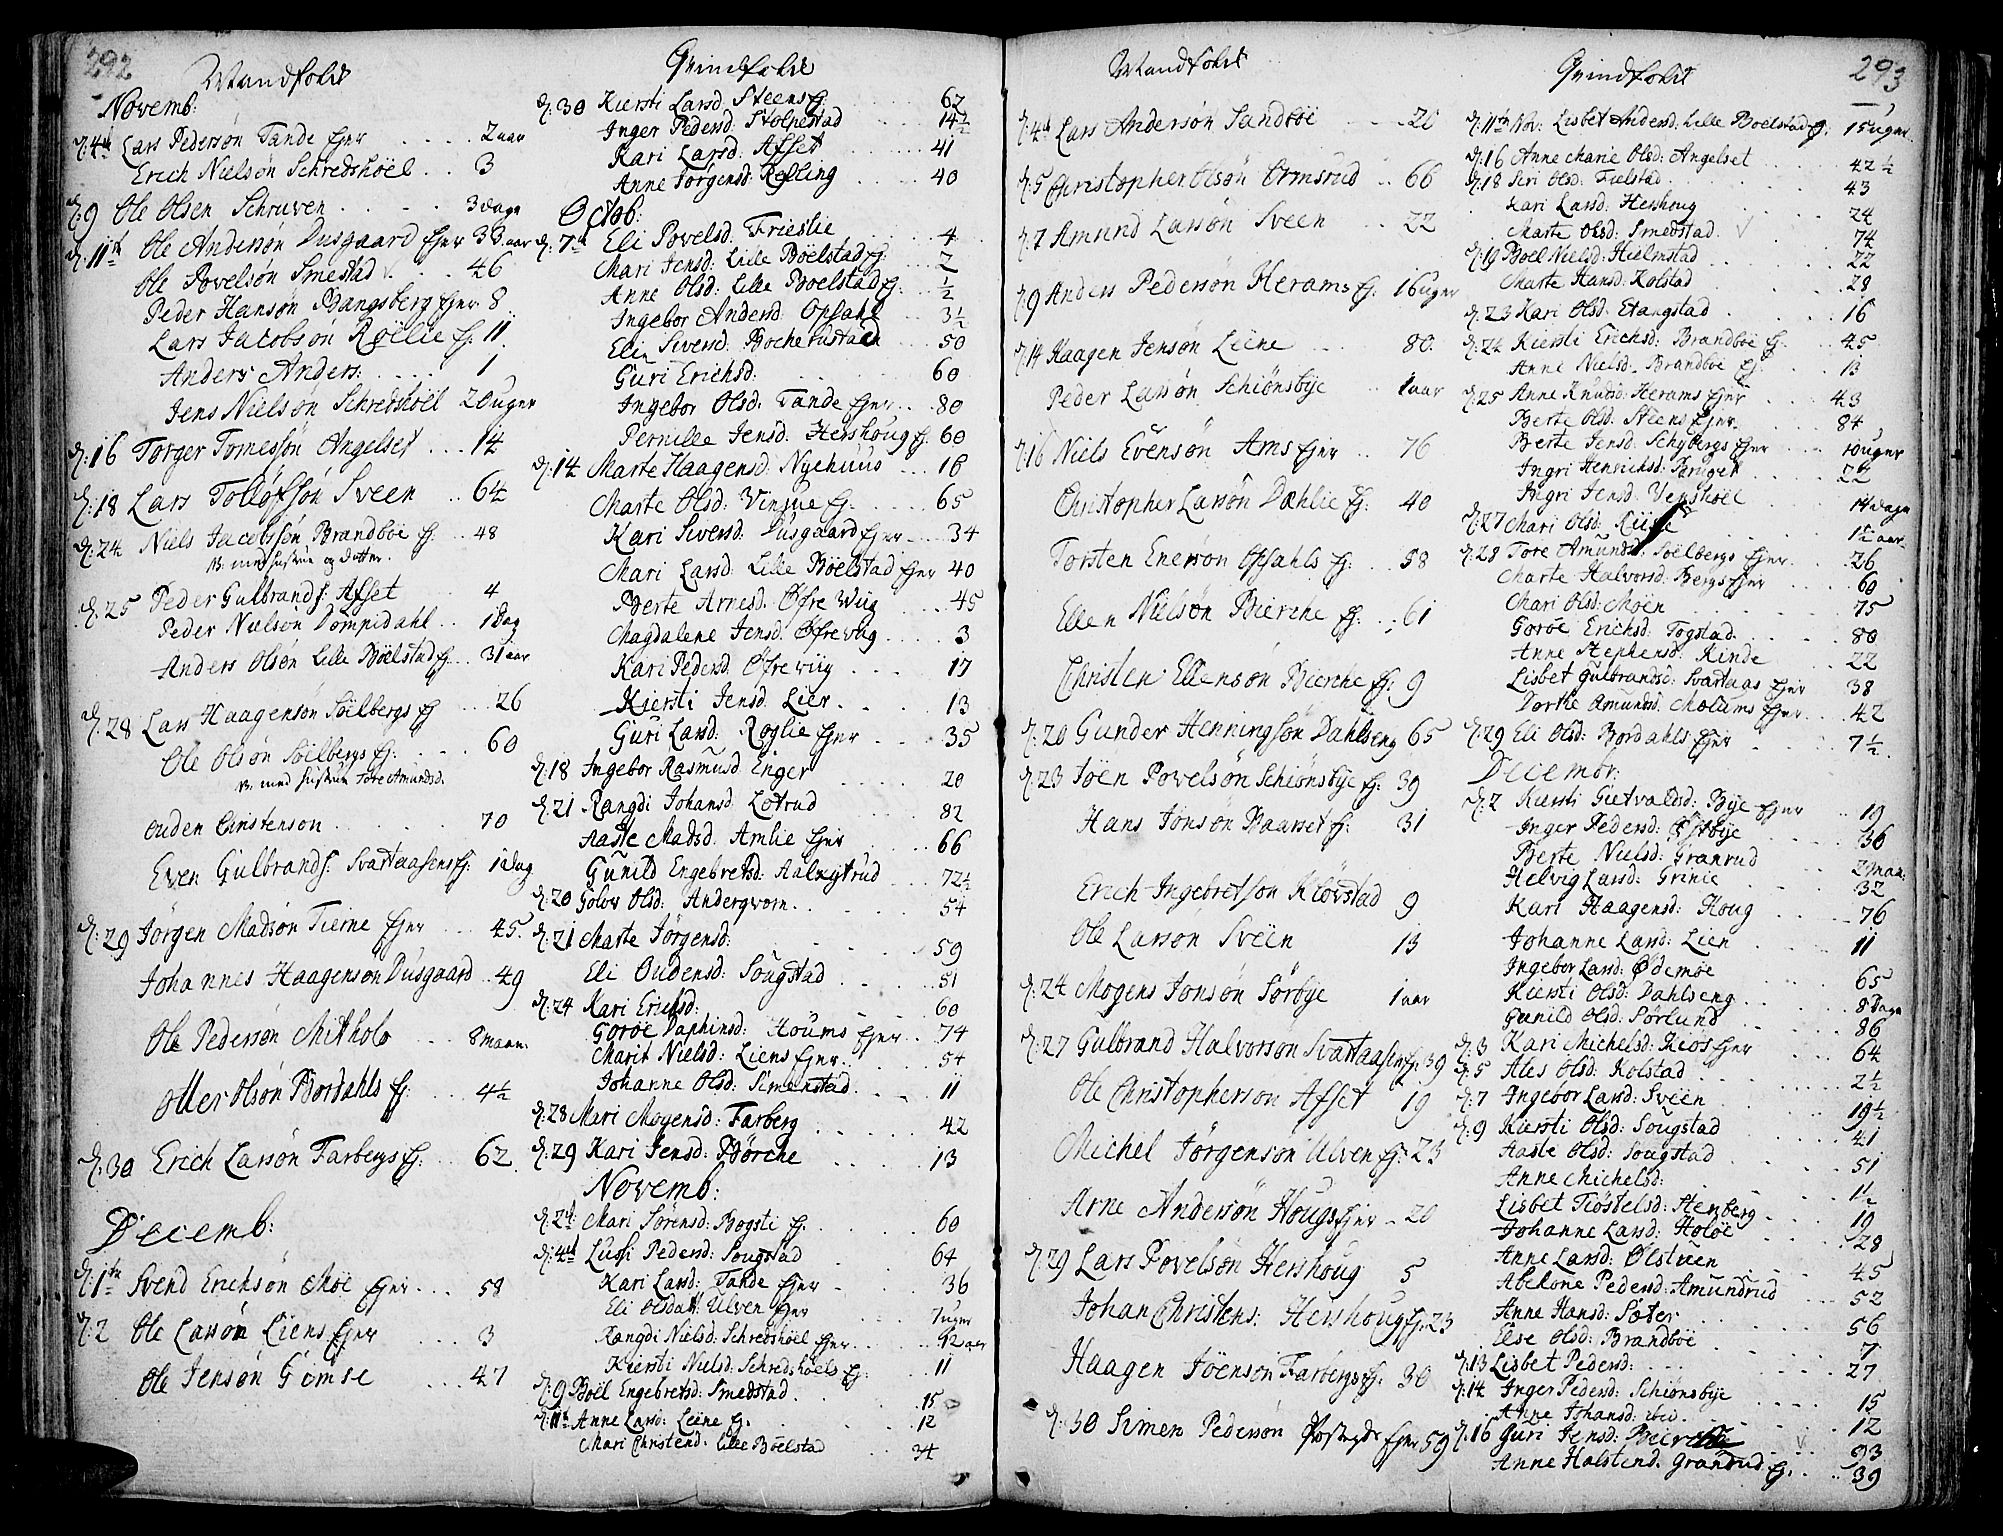 292
Mandfolk
Novemb:
d: 4th Lars Pedersøn Tande Ejer 2 aar
Erich Nielsøn Schredshöel 3
d: 9 Ole Olsen Schruven 3 dage
d: 11th Ole Andersøn Dusgaard Ejer 33 aar
Ole Povelsøn Smestad 46
Peder Hansøn Bangsberg Ejer 8
Lars Jacobsøn Röelie Ej: 11
Anders Anders: 1
Jens Nielsøn Schredshöel 20 uger
d: 16 Torger Tomessøn Angelset 14
d: 18 Lars Tolløfsøn Sveen 64
d: 24 Niels Jacobssøn Brandböe Ej: 48
NB. med hustrue og datter.
d: 25 Peder Gulbrands: Afset 4
Peder Nielsøn Dompidahl 1 Dag
Anders Olsøn Lille Böelstad Ej: 31 aar
d: 28 Lars Haagensøn Söilbergs Ej 26
Ole Olsøn Söilbergs Ej: 60
NB. med hustrue Tore Amundsd.
Ouden Christensøn 70
Even Gulbrands: Svartaasens Ej: 1 Dag
d: 29 Jörgen Madsøn Tierne Ejer 45
Johannes Haagensøn Dusgaard 49
Ole Pedersøn Mitholo 8 maan:
Otter Olsøn Bordahls Ej: 4½
d: 30 Erich Larsøn Farbergs Ej: 62
Decemb:
d: 1te Svend Ericksøn Moe Ejer 58
d: 2 Ole Larsøn Liens Ejer 3
Ole Jensøn Gimse 47
Qvindfolk
d: 30 Kiersti Larsd. Steens Ej: 62
Inger Pedersd. Stolpestad 14½
Kari Larsd. Afset 41
Anne Jørgensd. Rolling 40
Octob:
d: 7th Eli Povelsd. Frieslie 4
Mari Jensd: Lille Böelstad Ej: 2
Anne Olsd: Lille Boelstad Ej: ½
Ingebor Andersd. Opsahl 3½
Eli Siversd: Bocherustaen 50
Guri Erichsd: 60
Ingebor Olsd: Tande Ejer 80
Pernille Jensd. Hershoug Ej: 60
d: 14 Marte Haagensd. Nyehuus 16
Marte Olsd: Vinjue Ej. 65
Kari Siversd. Dusgaard Ejer 34
Mari Larsd. Lille Böelstad Ejer 40
Berte Arnesd. Øfre Wiig 45
Magdalene Jensd. Øfre wiig 3
Kari Pedersd. Øfre wiig 17
Kiersti Jensd. Lier 13
Guri Larsd. Roglie Ejer 35
d: 18 Ingebor Rasmusd. Enger 20
d: 21 Rangdi Johansd. Lotrud 82
Aaste Madsd. Amlie Ejer 66
Gunild Engebretsd: Aalrytrud 72½
d: 20 Golov Olsd: Andergvorn 54
d: 21 Marte Jörgensd: 59
Eli Oudensd: Sougstad 51
d: 24 Kari Ericksd: 60
Goroe Daphinsd: Houms Ejer 74
Marit Nielsd: Liens Ejer 54
Johanne Olsd: Simenstad 11
d: 28 Mari Mogensd: Farberg 42
d: 29 Kari Jensd: Börche 13
Novemb:
d: 2d Mari Sørensd: Bogsti Ej. 60
d: 4th Lussi Pedersd: Sougstad 64
Kari Larsd: Tande Ejer 36
Eli Olsdatt: Ulven Ejer 7 uger
Rangdi Nielsd: Schredshöel Ejer 12 aar
Kiersti Nielsd: Schredshöels Ej: 11
d: 9 Böel Engebretsd: Smedstad 15
d: 11th Anne Larsd: Leine Ej. 12
Mari Christend: Lille Böelstad 34
Mandfolk
d: 4th Lars Andersøn Sandböe 20
d: 5 Christopher Olsøn Ormsrud 66
d: 7 Amund Larsøn Sveen 22
d: 9 Anders Pedersøn Herams Ej: 16 uger
d: 14 Haagen Jensøn Leine 80
Peder Larsøn Schiönsbye 1 aar
d: 16 Niels Evensøn Ams Ejer 76
Christopher Larsøn Dæhlie Ej: 40
Torsten Enersøn Opsahls Ej: 58
Ellen Nielsøn Bierche Ej: 61
Christen Ellensøn Bierche Ej: 9
d: 20 Gunder Henningsøn Dahlseng 65
d: 23 Joen Povelsøn Schiönsbye Ej: 39
Hans Jonsøn Baarset Ej: 31
Erich Ingebretsøn Klövstad 9
Ole Larsøn Sveen 13
d: 24 Mogens Jonsøn Sørbye 1 aar
d: 27 Gulbrand Halvorsøn Svartaasens Ej: 39
Ole Christophersøn Afset 19
Michel Jørgensøn Ulven Ej: 23
Arne Andersøn Hougs Ejer 20
d: 29 Lars Povelsøn Hershoug 5
Johan Christens: Hershoug Ej: 23
Haagen Joensøn Farbergs Ej: 30
d: 30 Simen Pedersøn Ejer 59
Qvindfolk
293
d: 11th Nov: Lisbet Andersd: Lille Boelstad Ej: 15 uger
d: 16 Anne Marie Olsd: Angelset 42½
d: 18 Siri Olsd: Fielstad 43
Kari Larsd: Hershoug 24
Marte Olsd: Smedstad 74
d: 19 Boel Nielsd: Hielmstad 22
Marte Hansd: Kolstad 28
d: 23 Kari Olsd: Stangstad 16
d: 24 Kiersti Erichsd: Brandböe Ej. 45
Anne Nielsd. Brandböe Ej: 13
d: 25 Anne Knudsd: Herams Ejer 43
Berte Olsd: Steens Ejer 84
Berte Jensd: Schybergs Ejer 10 uger
Ingri Henrichsd: Bruget 22
Ingri Jensd: Venshoel 14 dage
d: 27 Mari Olsd: 1½ aar
d: 28 Tore Amunds: Söilbergs Ejer 26
Marte Halvorsd: Bergs Ejer 60
Mari Olsd: Moen 75
Goröe Erichsd: Togstad 80
Anne Stephensd: Kinde 22
Lisbet Gulbrandsd: Svartaas Ejer 38
Dorthe Amundsd. Molums Ejer 42
d: 29 Eli Olsd: Bordahls Ejer 7½
Decembr:
d: 2 Kiersti Gietvaldsd: Bye Ejer 19
Inger Pedersd: Østbye 36
Berte Nielsd: Granrud 2 maan:
Helvig Larsd: Grinie 32
Kari Haagensd: Houg 76
Johanne Larsd: Lien 11
Ingebor Larsd: Ødemoe 65
Kiersti Olsd: Dahlseng 8 dage
Gunild Olsd: Sørlund 86
d: 3 Kari Michelsd: Kios Ejer 64
d: 5 Ales Olsd: Kolstad 2½
d: 7 Ingebor Larsd: Sveen 19½
d: 9 Kiersti Olsd: Sougstad 41
Aaste Olsd: Sougstad 51
Anne Michelsd: 1½
Lisbet Tiöstelsd: Stenberg 19
Johanne Larsd: Holöe 28
Anne Larsd: Ølstuen 45
Abelone Pedersd: Amundrud 52
Anne Hansd: Sæter 56
Else Olsd: Brandböe 7
d: 13 Lisbet Pedersd: 27
d: 14 Inger Pedersd: Schiönsbye 15
Anne Johansd: ibid. 12
d: 16 Guri Jensd: 93
Anne Halstend. Granrud Ej. 39